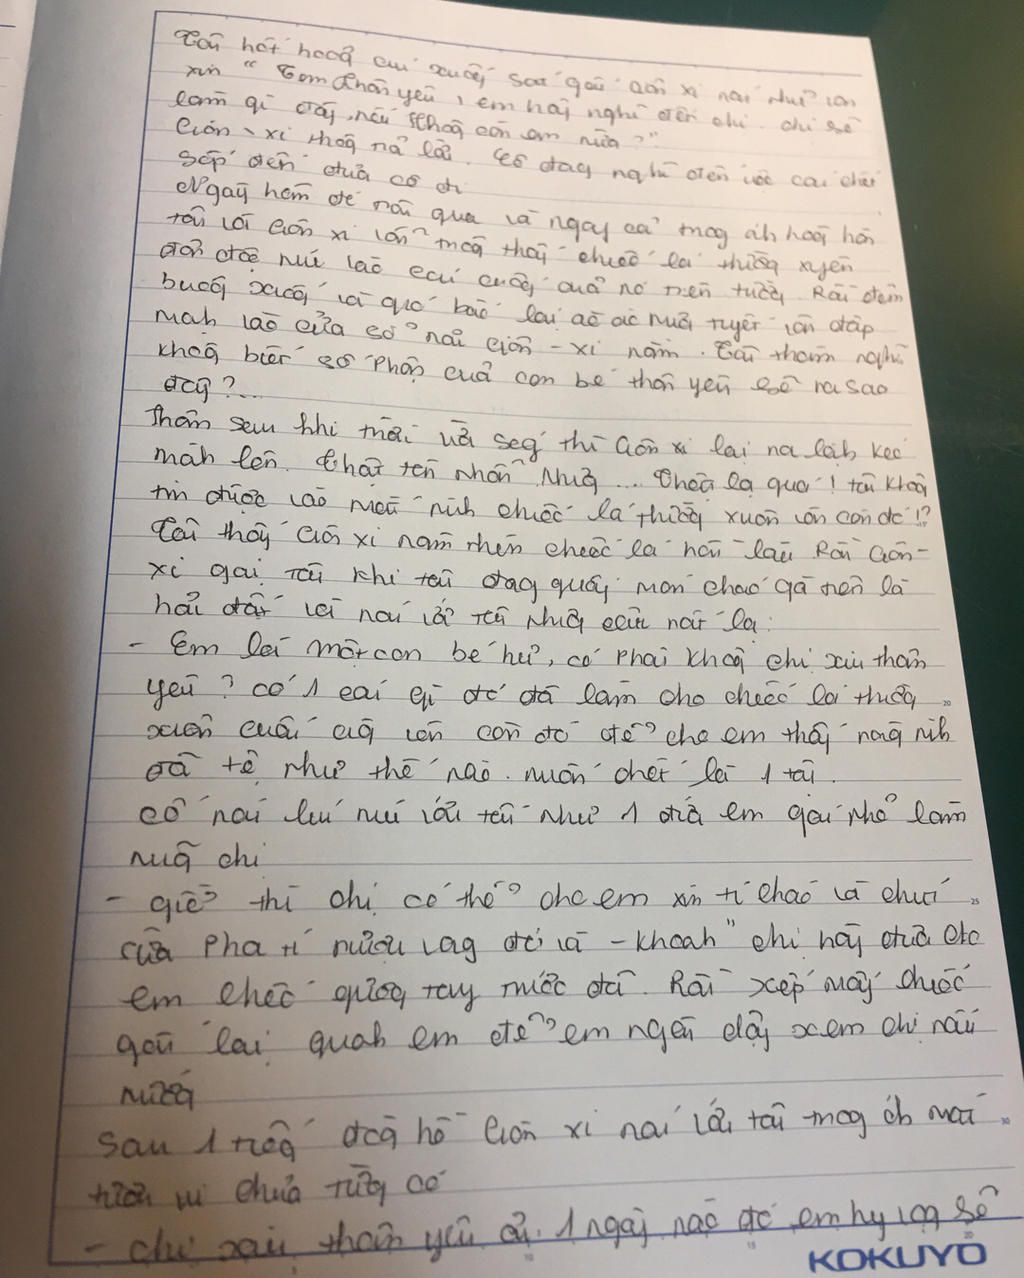 Tôi hốt hoảg cúi xuốg sát gối Giôn xi nói như van
xin " Em thân yêu, em hãy nghĩ đến chị. chị sẽ
làm gì đây, nếu khôg còn em nữa?"
Giôn-xi khôg trả lời. Cô đag nghĩ đến về cái chết
sắp đến đưa cô đi
Ngày hôm đó trôi qua và ngay cả trog áh hoàg hôn
tôi và Giôn xi vẫn trôg thấy chiếc lá thườg xuyên
đơn độc níu vào cái cuốg của nó trên tườg. Rồi đêm
buôg xuốg và gió bấc lại ào ào mưa tuyết vẫn đập
mạh vào cửa sổ nơi Giôn-xi nằm. Tôi thầm nghĩ
khôg biết số phận của con bé thân yêu sẽ ra sao
đây?...
Thầm sau khi trời vừa ság thì Giôn xi lại ra lệh kéo
màh lên. Thật tàn nhẫn. Nhưg ... Thật lạ quá! tôi khôg
tin được vào mắt mìh chiếc lá thườg xuân vẫn còn đó!?
Tôi thấy Giôn xi nằm nhìn chiếc lá hồi lâu. Rồi Giôn-
xi gọi tôi khi tôi đag quấy món cháo gà trên lò
hơi đốt và nói với tôi nhữg câu rất lạ:
- Em là một con bé hư, có phải khôg chị xiu thân
yêu? có 1 cái gì đó đã làm cho chiếc lá thườg
xuân cuối cùg vẫn còn đó để cho em thấy rằg mìh
đã tệ như thế nào. muốn chết là 1 tội.
cô nói líu ríu với tôi như 1 đứa em gái nhỏ làm
nũg chị
- giờ thì chị có thể cho em xin tí cháo và chút
sữa pha tí rượu vag đỏ và - khoah" chị hãy đưa cho
em chiếc gươg tay trước đã. Rồi xếp mấy chiếc
gối lại quah em để em ngồi dậy xem chị nấu
nướg
sau 1 tiếg đồg hồ Giôn xi nói với tôi trog áh mắt
chưa từg có
- chị xiu thân yêu ơi. 1 ngày nào đó em hy vọg sẽ
KOKUYO